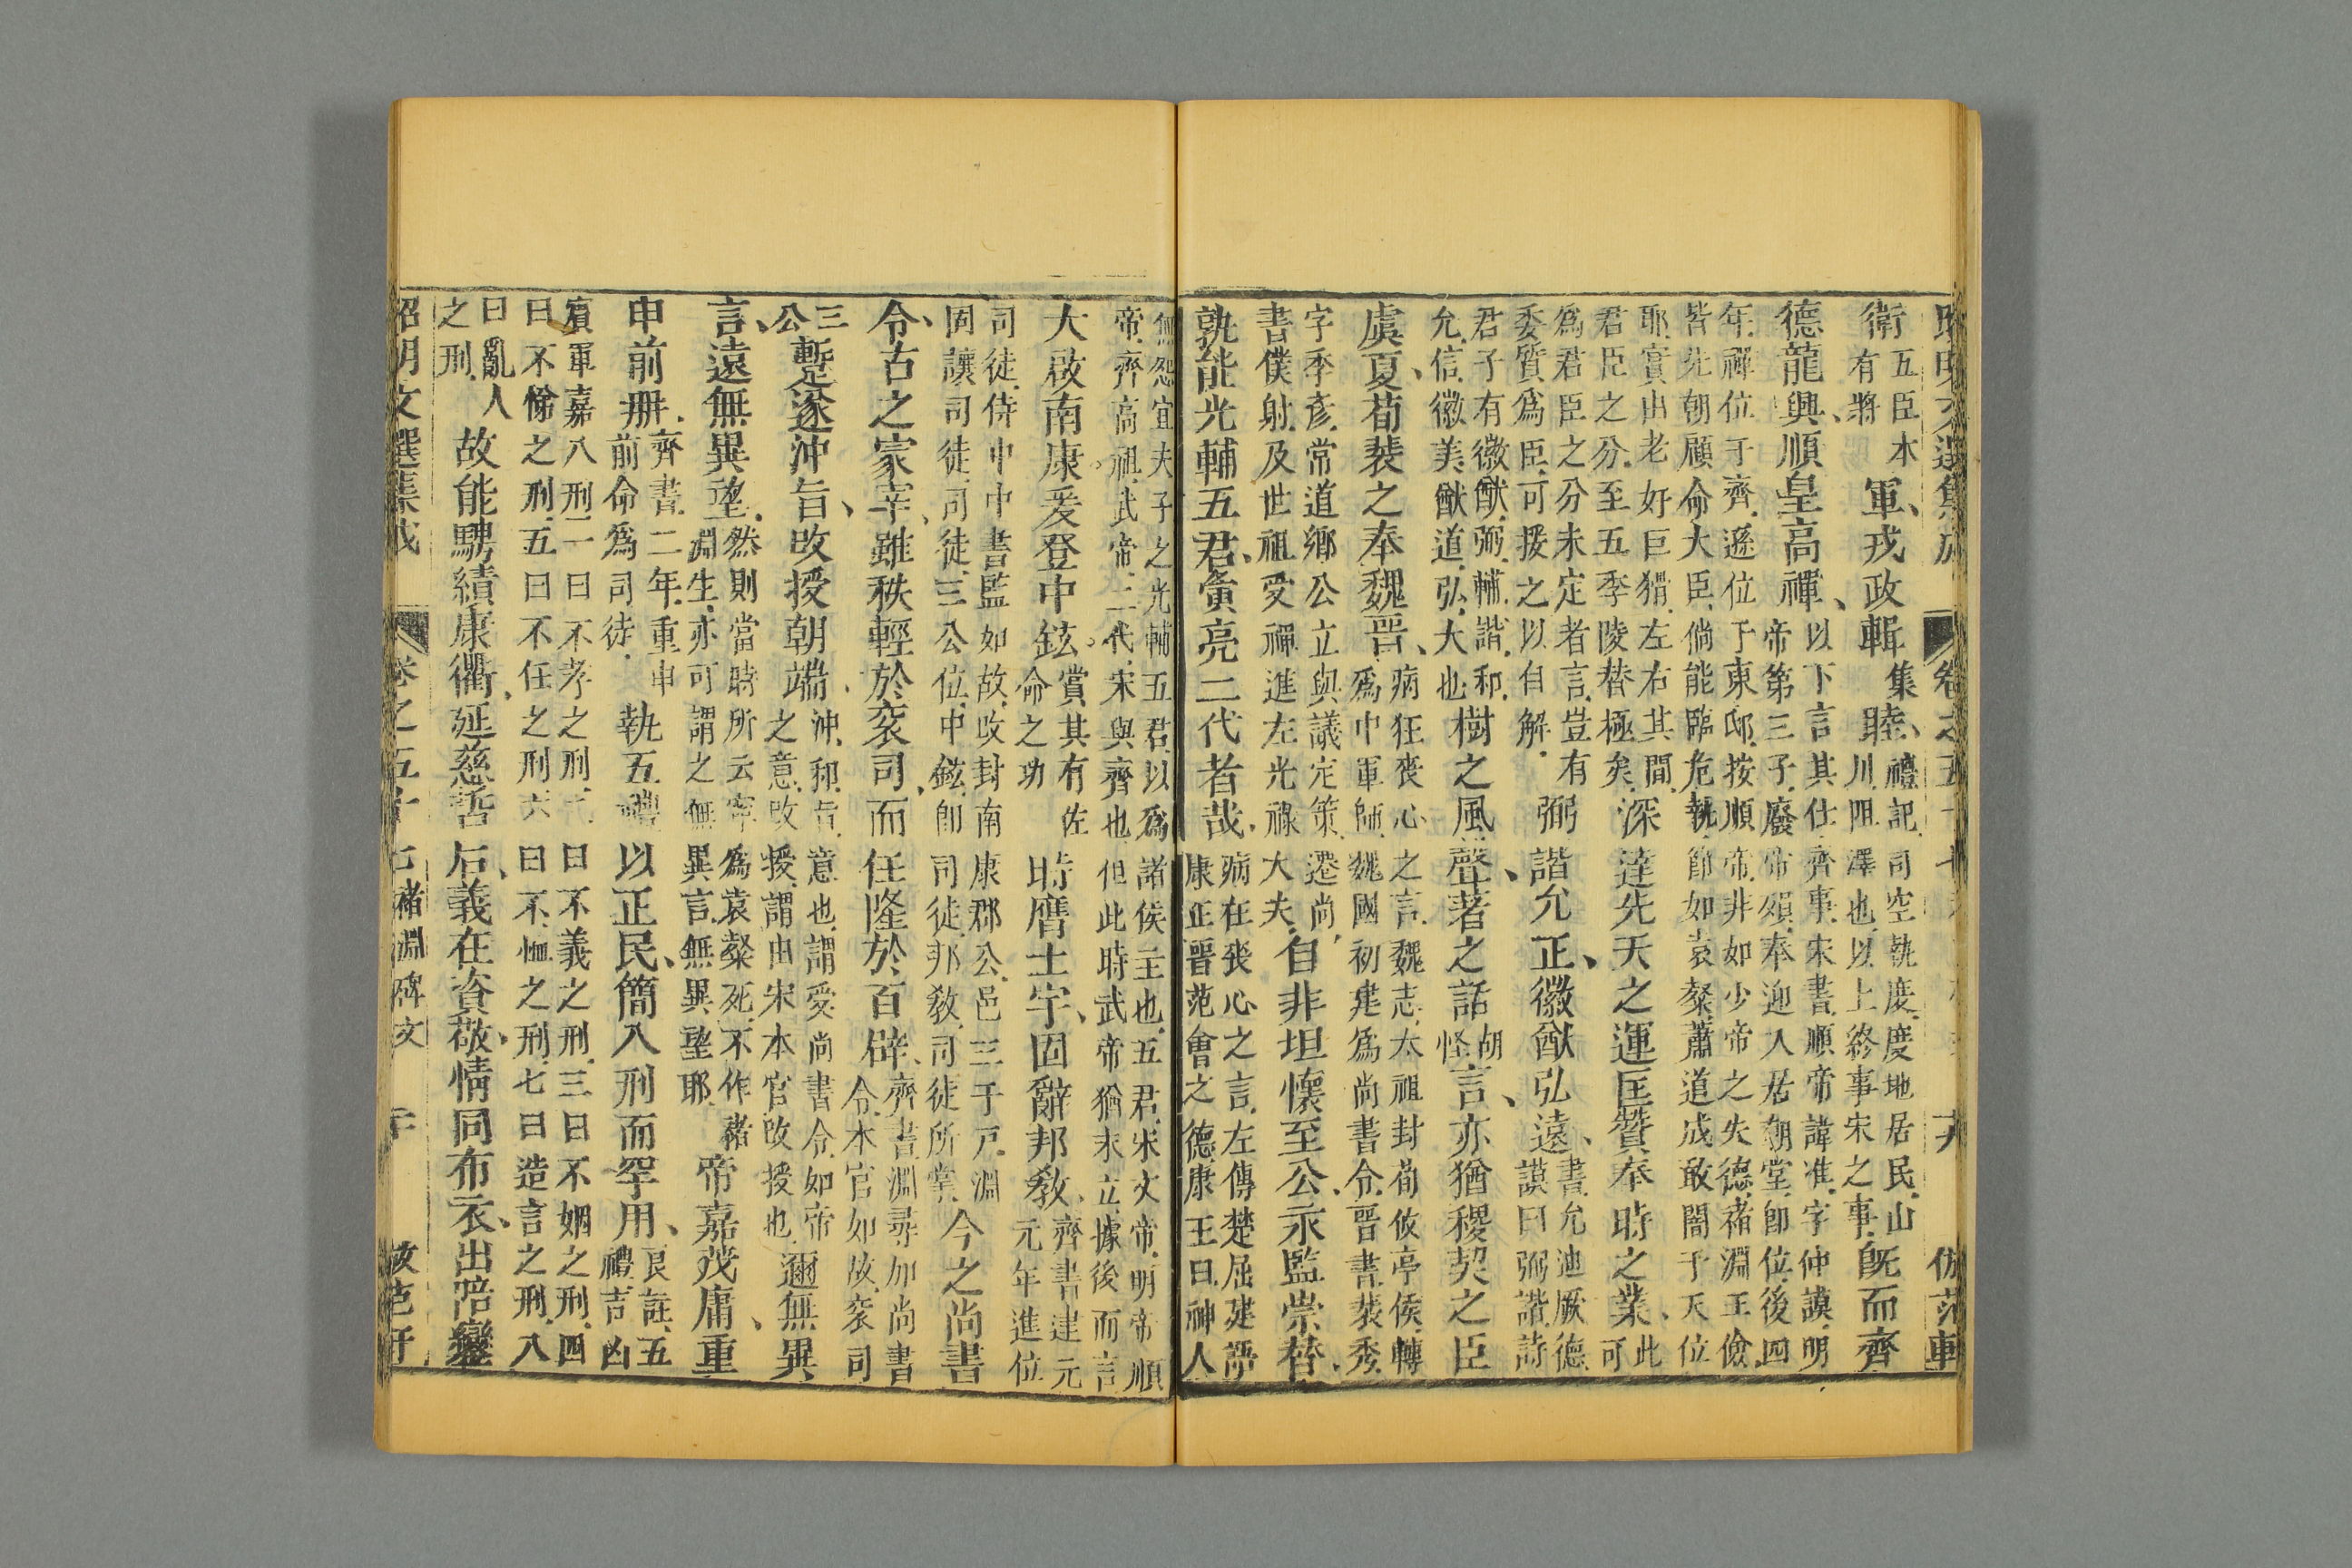 昭明文選集成 卷之五十七 十九 仿范軒
衛五臣本有將軍、戎政輯集睦、禮記司空執度度地居民山川沮澤也以上終事宋之事既而齊
德龍興、順皇高禪、以下言其仕齊事宋書順帝諱准字仲謨明帝第三子廢帝殞奉迎入居朝堂即位後四
年禪位于齊遜位于東邸按順帝非如少帝之失德褚淵王儉皆先朝顧命大臣倘能臨危執節如袁粲蕭道成敢闇于天位
耶實由老好巨猾左右其間君臣之分至五季陵替極矣深達先天之運匡贊奉時之業、此可
為君臣之分未定者言豈有委質為臣可援之以自解弼諧允正、徽猷弘遠、書允迪厥德謨曰弼諧詩
君子有徽猷弼輔諧和允信徽美猷道弘大也樹之風聲、著之話胡怪言、亦猶稷契之臣
虞夏、荀裴之奉魏晉、病狂喪心之言魏志太祖封荀攸亭侯轉為中軍師魏國初建為尚書令晉書裴秀
字季彥常道鄉公立與議定策遷尚書僕射及世祖受禪進左光祿大夫自非坦懷至公、永監崇替、
孰能光輔五君、寅亮二代者哉、病在喪心之言左傳楚屈建語康正晉范會之德康王曰神人
無怨宜夫子之光輔五君以為諸侯主也五君宋文帝明帝順帝齊高祖武帝二代宋與齊也但此時武帝猶未立據後而言
大啟南康。爰登中鉉。賞其有佐命之功時膺土宇、固辭邦敎、齊書建元元年進位
司徒侍中中書監如故改封南康郡公邑三千戶淵固讓司徒司徒三公位中鉉即司徒邦敎司徒所掌今之尚書
令、古之冢宰、雖秩輕於袞司、而任隆於百辟、齊書淵尋加尚書令本官如故袞司
三公暫遂沖旨、改授朝端、沖和旨意也謂受尚書令如帝之意改授謂由宋本官改授也邇無異
言、遠無異望、然則當時所云寧為袁粲死不作褚淵生亦可謂之無異言無異望耶帝嘉茂庸、重
申前冊、齊書二年重申前命為司徒執五禮以正民、簡八刑而罕用、良註五禮吉凶
賓軍嘉八刑一曰不孝之刑二曰不義之刑三曰不姻之刑四曰不悌之刑五曰不任之刑六曰不恤之刑七曰造言之刑八
曰亂人之刑故能騁績康衢、延慈哲后、義在資敬、情同布衣、出陪鑾
昭明文選集成 卷之五十七 褚淵碑文 二十 仿范軒